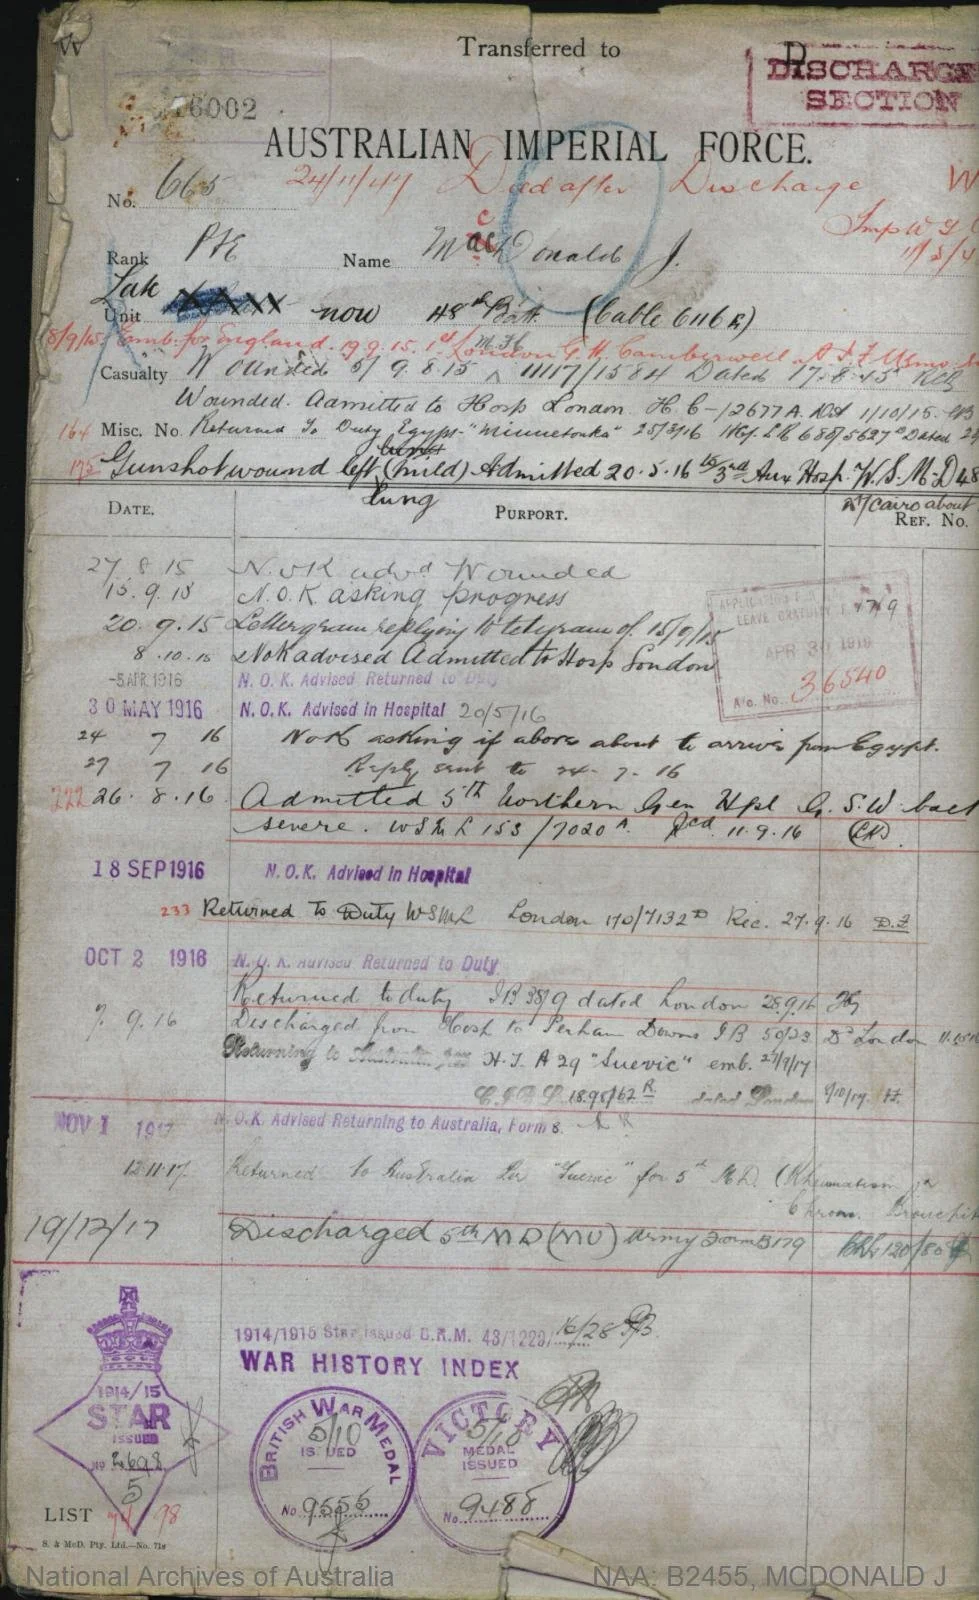 Transferred to
DISCHARGE
SECTION
6002
AUSTRALIAN IMPERIAL FORCE.
24/11/47 Died after Discharge
No. 665
Rank Pte Name MacDonald J.
Late
Unit now 48th Batt. (Cable 6116 R)
8/9/15 Emb. for England. 19.9.15. 1st London G.H. Camberwell
Casualty Wounded 5/9.8.15 M.36 11117/1584 Dated 17.8.15
Wounded. Admitted to Hosp London. H C-/2677A. Dd 1/10/15.
164 Misc. No. Returned To Duty Egypt "Minnetonka" 25/3/16 Dated
175 Gunshot wound left lung (mild) Admitted 20.5.16 3rd Aux Hosp. W.S.M.D 48
Cairo about
DATE. PURPORT. REF. No.
27 8 15 N.O.K advd Wounded
15.9.15 N.O.K asking progress
20.9.15 Lettergram replying to telegram of 15/9/15
8.10.15 NoK advised Admitted to Hosp London
-5 APR 1916 N. O. K. Advised Returned to Duty
30 MAY 1916 N. O. K. Advised in Hospital 20/5/16
LEAVE GRATUITY
APR 30 1919
A/c. No. 36540
24 7 16 NoK asking if above about to arrive from Egypt.
27 7 16 Reply sent to 24.7.16
222 26.8.16 Admitted 5th Northern Gen Hpl G.S.W. back
severe. WSML 153/7020 A. Rcd 11.9.16
18 SEP 1916 N. O. K. Advised in Hospital
233 Returned to Duty WSML London 170/7132 D Rec. 27.9.16 D.F
OCT 2 1916 N. O. K. Advised Returned to Duty
Returned to duty IB 38/9 dated London 28.9.16
7. 9.16 Discharged from Hosp to Perham Downs IB 50/23 Dd London
Returning to Australia per H.T. A 29 "Suevic" emb. 27/9/17
1898/62 R. dated London 9/10/17
NOV 1 1917 N. O. K. Advised Returning to Australia, Form 8.
12.11.17. Returned to Australia per "Suevic" for 5th M.D. (Rheumatism
Chron. Bronchitis
19/12/17 Discharged 5th MD (MU) Army Form B179
1914/1915 Star Issued B.R.M. 43/1220/ 16/28
WAR HISTORY INDEX
1914/15
STAR
ISSUED
No 2698
5
BRITISH WAR MEDAL
5/10
ISSUED
No. 9555
VICTORY
MEDAL
ISSUED
No. 9488
LIST 98
S. & McD. Pty. Ltd.—No. 718
National Archives of Australia NAA: B2455, MCDONALD J